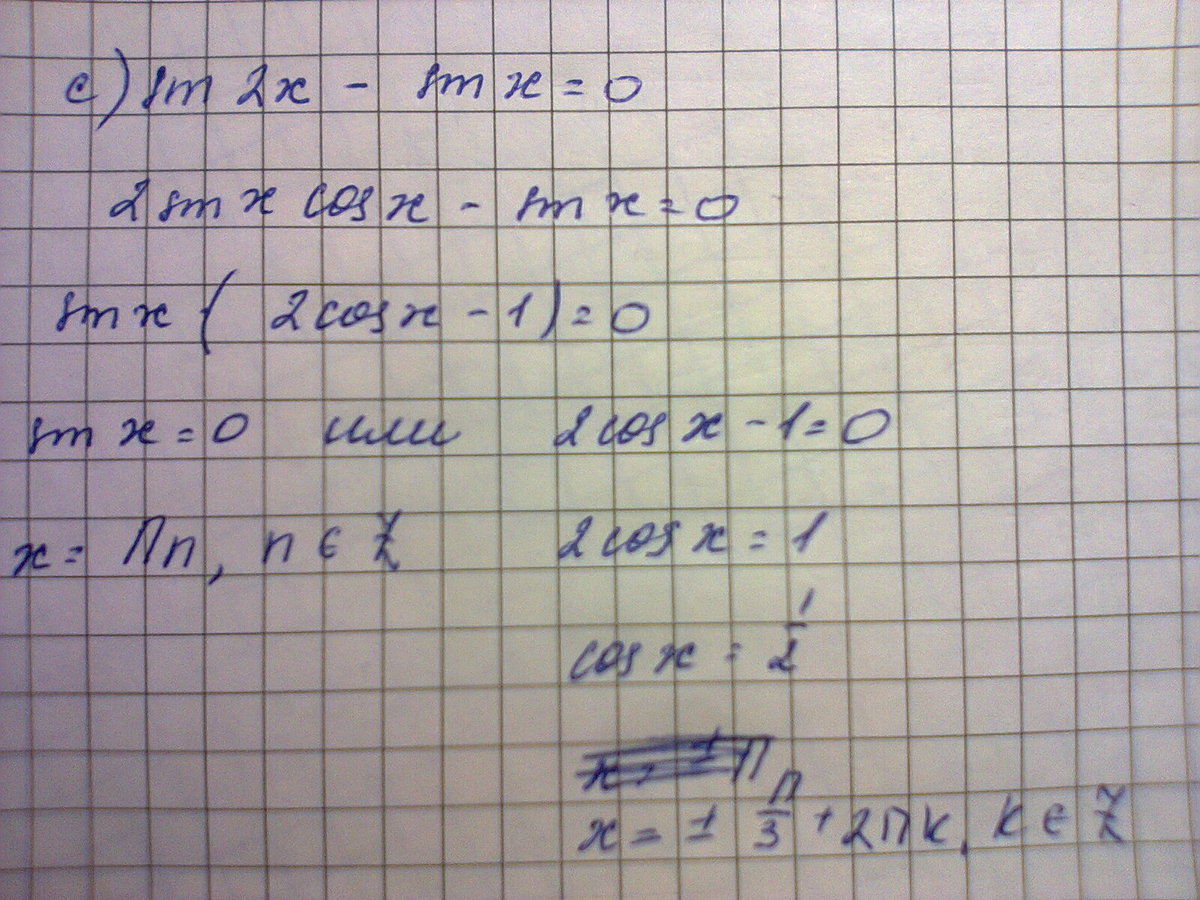 е) sin 2x - sin x = 0
2 sin x cos x - sin x = 0
sin x ( 2 cos x - 1 ) = 0
sin x = 0 или 2 cos x - 1 = 0
x = Πn, n ∈ Z 2 cos x = 1
cos x = 1/2
x = ± Π
x = ± Π/3 + 2Πk, k ∈ Z